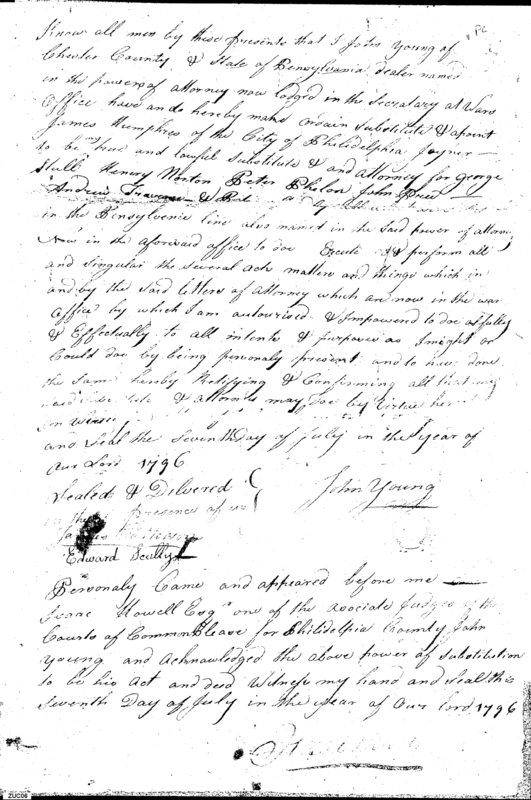 PC
Know all men by these Presents that I John Young of
Chester County & State of Pensylvania dealer named
in the powers of attorney now lodged in the Secratary at Wars
Office have an do hereby make ordain substitute & apoint
James Humphres of the City of Philidelphia Joyner
to be my true and lawful Substitute & and Attorney for George
Stull Henery Norton Peter Phelon John
Andrew
in the Pinsylvenia line also named in the said power of attorney
Now in the aforward office to doe Excute & perform all
and singular the several acts matters and things which in
and by the said letters of Attorney which are now in the war
office by which I am autourised & Impowered to doe as fully
& Effectually to all intents & purpaces as I might or
Could doe by being personaly present and to have done
the same hereby Ratifying & Confirming all that my
said & attorney may doe by Virtue
In
and Seal the SeventhDay of July in the Year of
Our Lord 1796
Sealed & Dilvered
in the Presence of us
John Young
James
Edward Scully
Personaly Came and appeared before me
Isaac Howell Esqr one of the asociate Judges of the
Courts of Common Pleave for Philidelpia County John
Young and acknowledged the above power of substitution
to be his act and deed Witness my hand and Seal this
Seventh Day of July in the year of Our lord 1796
ZUCD6